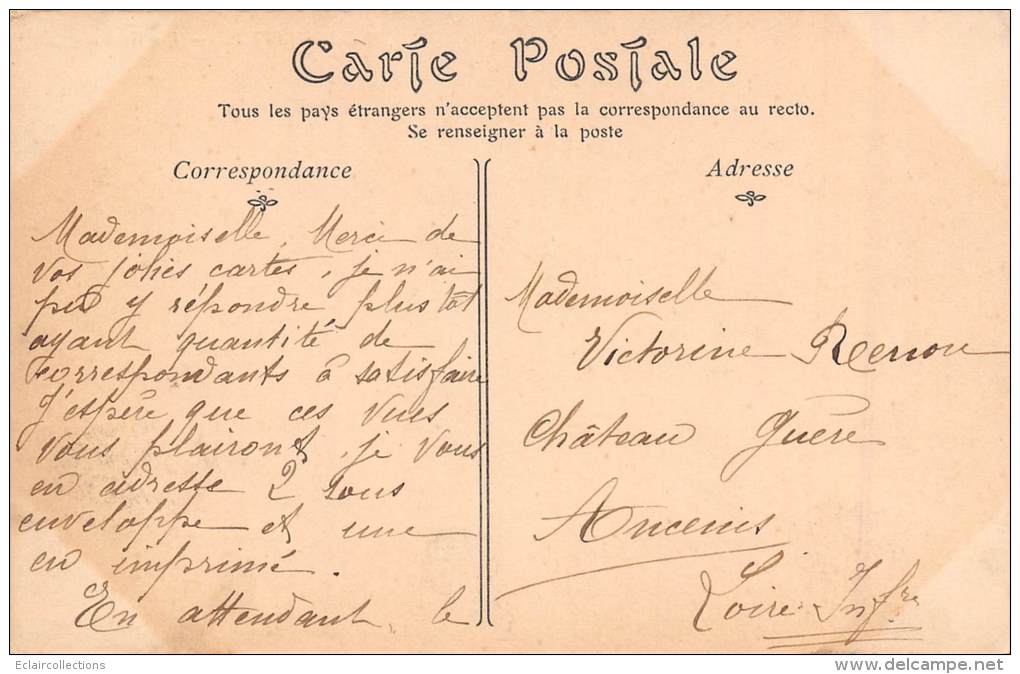 Carte Postale
Tous les pays étrangers n'acceptent pas la correspondance au recto.
Se renseigner à la poste
Correspondance
Mademoiselle, Merci de
vos jolies cartes, je n'ai
pu y répondre plus tôt
ayant quantité de
correspondants à satisfaire
J'espère que ces vues
vous plairont, je vous
en adresse 2 sous
enveloppe et une
en imprimé.
En attendant le
Adresse
Mademoiselle
Victorine Renou
Château Guère
Ancenis
Loire Infre
Eclaircollections
delcampe.net